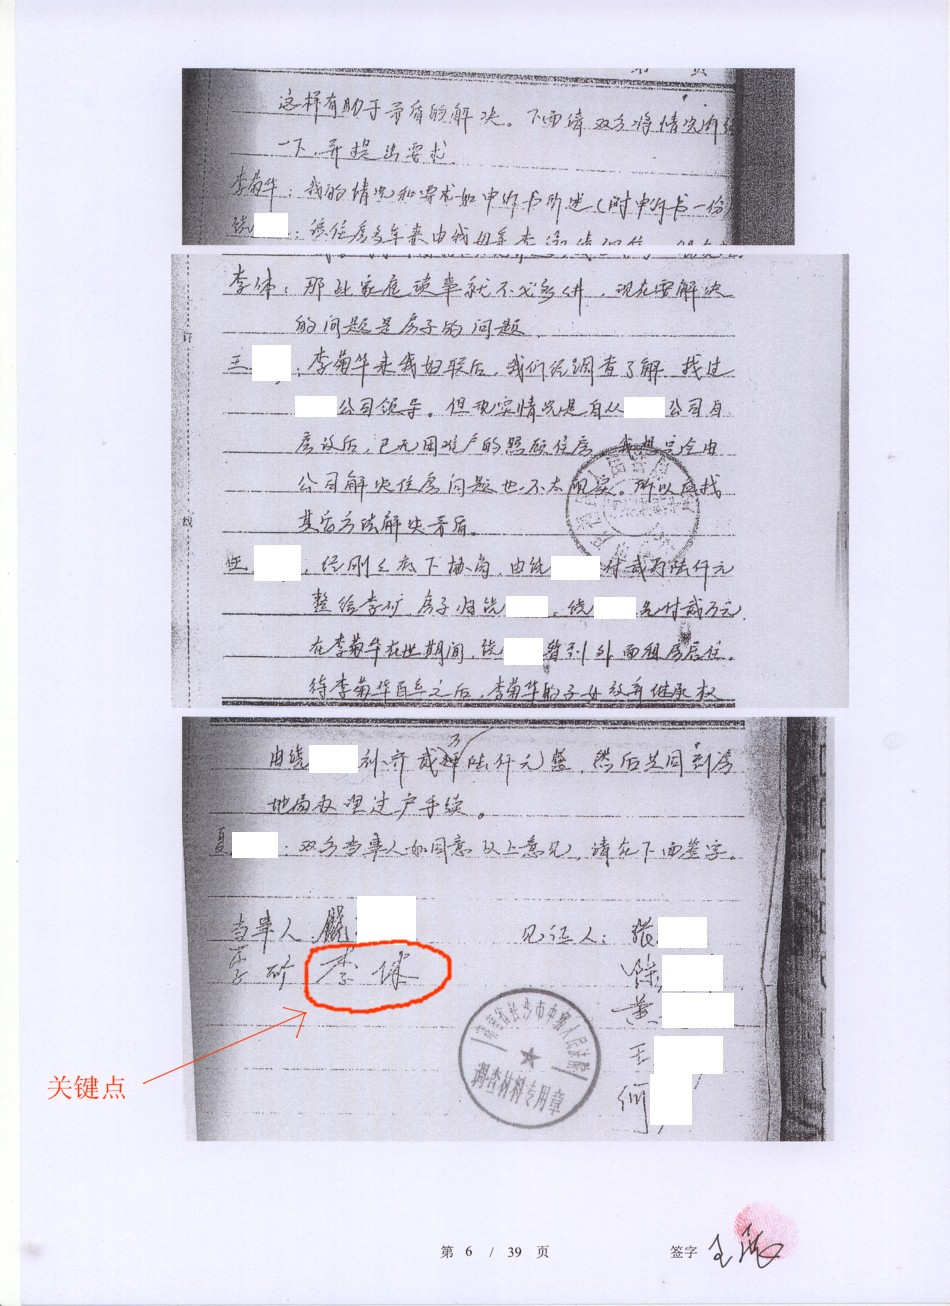 页
这样有助于矛盾的解决。下面请双方将情况
一下,并提出要求
李菊华:我的情况和要求如申诉书所述(附申诉书一份)
饶 :该住房多年来由我母亲
李体:那些家庭琐事就不必多讲,现在要解决
的问题是房子的问题
王 :李菊华来我妇联后,我们经调查了解 找过
公司领导。但现实情况是自从 公司自
房改后,已无困难户的照顾住房,我想完全由
公司解决住房问题也不太现实。所以应找
其它方法解决矛盾。
,经刚才底下协商,由饶 付贰万陆仟元
整给李矿 房子归饶 ,饶 先付贰万元
在李菊华在世期间,饶 暂到外面租房居住。
待李菊华百年之后,李菊华的子女放弃继承权
由饶 补齐贰万陆仟元整,然后共同到房
地局办理过户手续。
夏 :双方当事人如同意以上意见,请在下面签字。
当事人 饶
李矿 李体
见证人:张
徐
黄
王
何
湖南省长沙市中级人民法院
调查材料专用章
关键点
订
线
第 6 / 39 页
签字